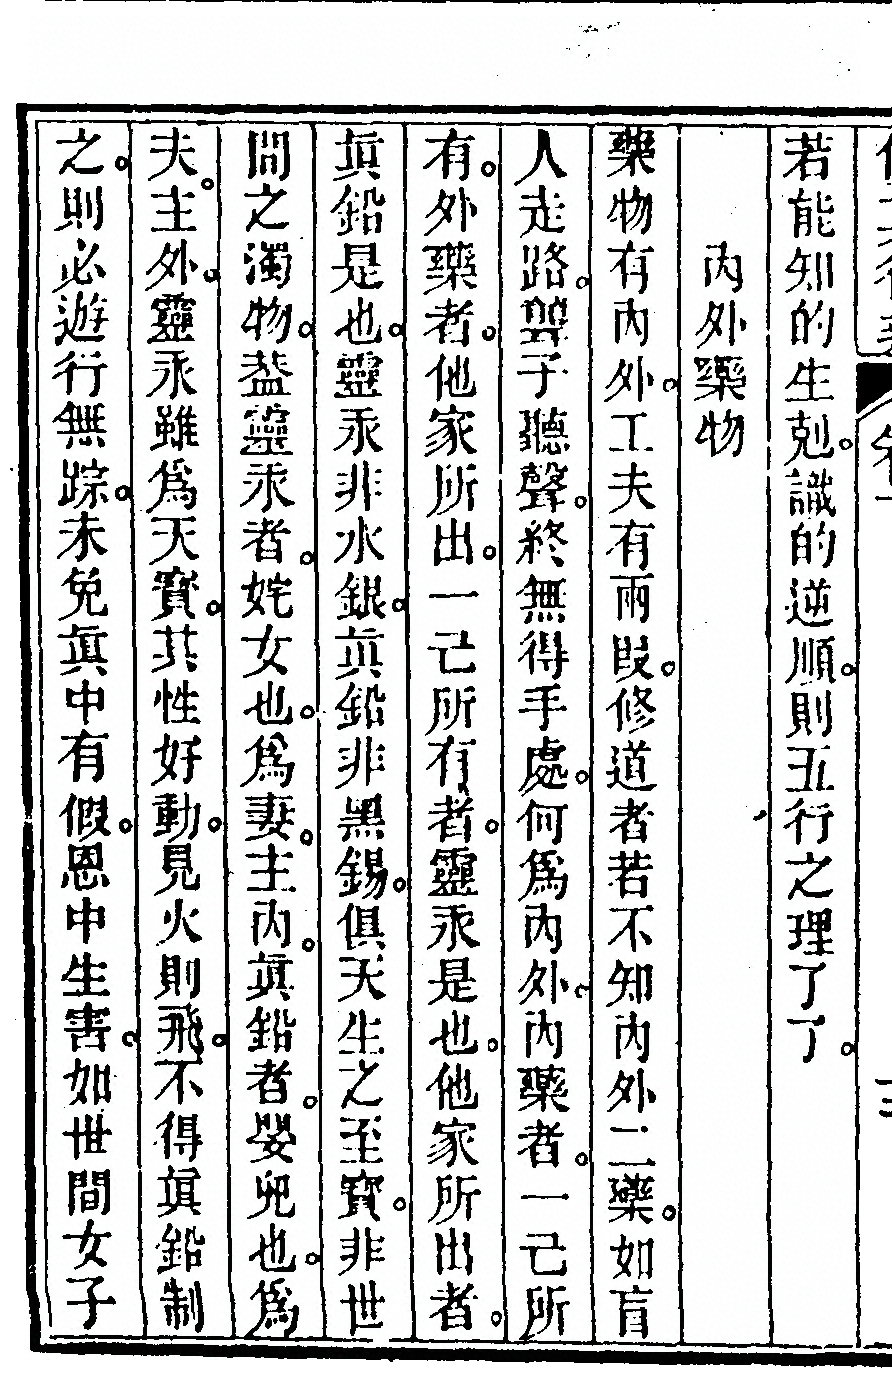 若能知的生剋。識的逆順。則五行之理了了。
內外藥物
藥物有內外。工夫有兩段。修道者若不知內外二藥。如盲
人走路。聾子聽聲。終無得手處。何爲內外。內藥者。一己所
有。外藥者。他家所出。一己所有者。靈汞是也。他家所出者。
眞鉛是也。靈汞非水銀。眞鉛非黑錫。俱天生之至寶。非世
間之濁物。葢靈汞者。姹女也。爲妻。主內。眞鉛者。嬰兒也。爲
夫。主外。靈汞雖爲天寶。其性好動。見火則飛。不得眞鉛制
之。則必遊行無踪。未免眞中有假。恩中生害。如世間女子